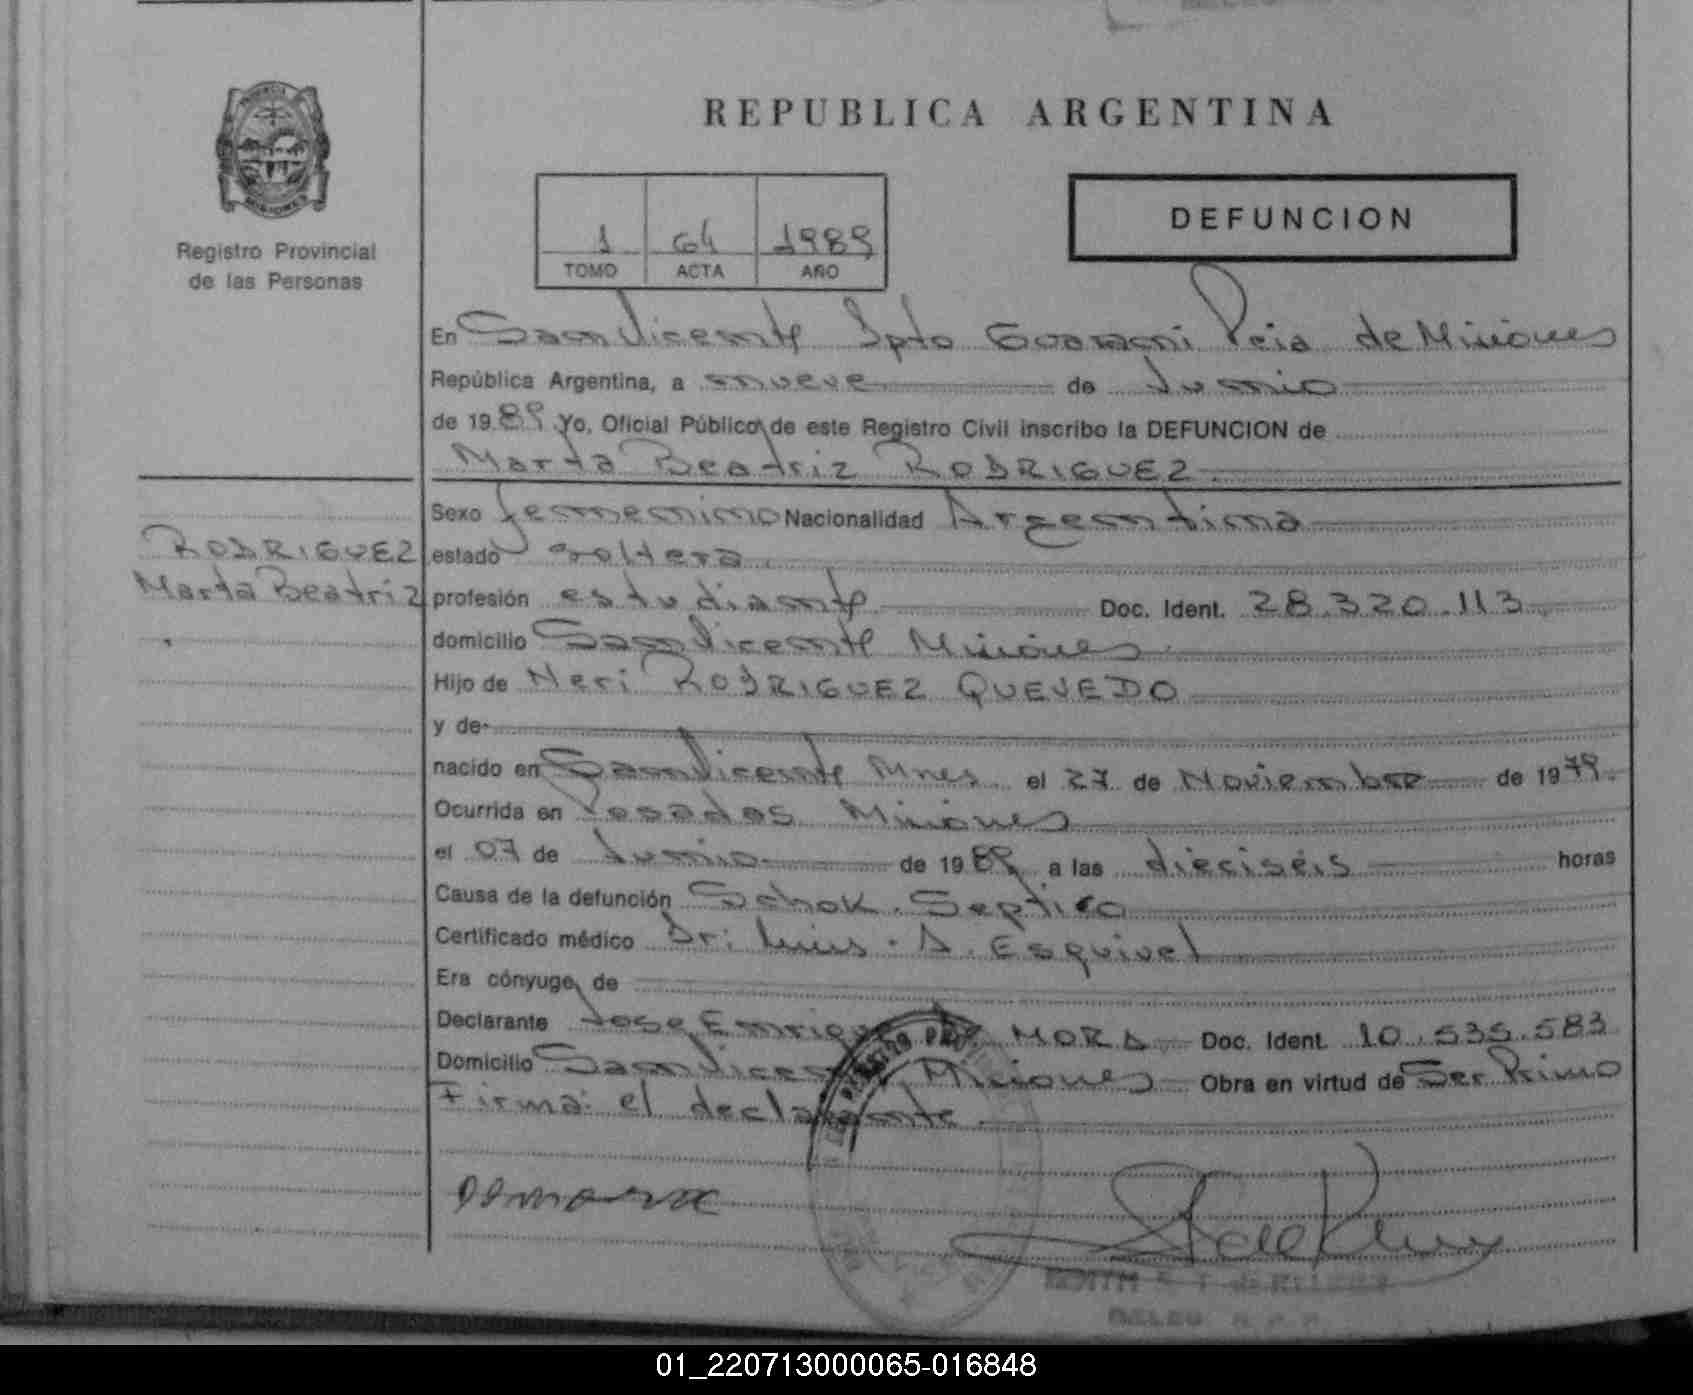 REPUBLICA ARGENTINA
DEFUNCION
1 64 1989
TOMO ACTA AÑO
Registro Provincial
de las Personas
En San Vicente Dpto Guarani Pcia de Misiones
República Argentina, a nueve de Junio
de 1989 Yo, Oficial Público de este Registro Civil inscribo la DEFUNCION de
Marta Beatriz RODRIGUEZ
Sexo femenino Nacionalidad Argentina
RODRIGUEZ
Marta Beatriz
estado soltera
profesión estudiante Doc. Ident. 28.320.113
domicilio San Vicente Misiones
Hijo de Neri RODRIGUEZ QUEVEDO
y de
nacido en San Vicente Mnes el 27 de Noviembre de 1979.
Ocurrida en Posadas Misiones
el 07 de Junio de 1989 a las dieciseis horas
Causa de la defunción Schok. Septico
Certificado médico Dr: Luis. A. Esquivel
Era cónyuge de
Declarante Jose Enrique de MORA Doc. Ident. 10.535.583
Domicilio San Vicente Misiones Obra en virtud de Ser Primo
Firma: el declarante
01_220713000065-016848